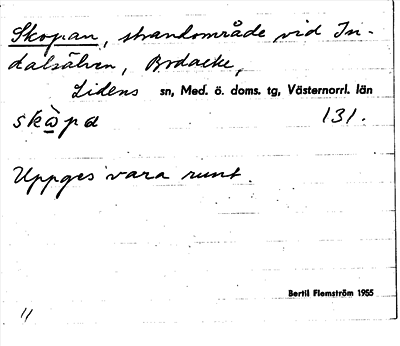 Skopan, strandområde vid In-
dalsälven, Bodacke,
Lidens sn, Med. ö. doms. tg, Västernorrl. län
skɷ̀pa 131.
Uppges vara runt.
Bertil Flemström 1955
11